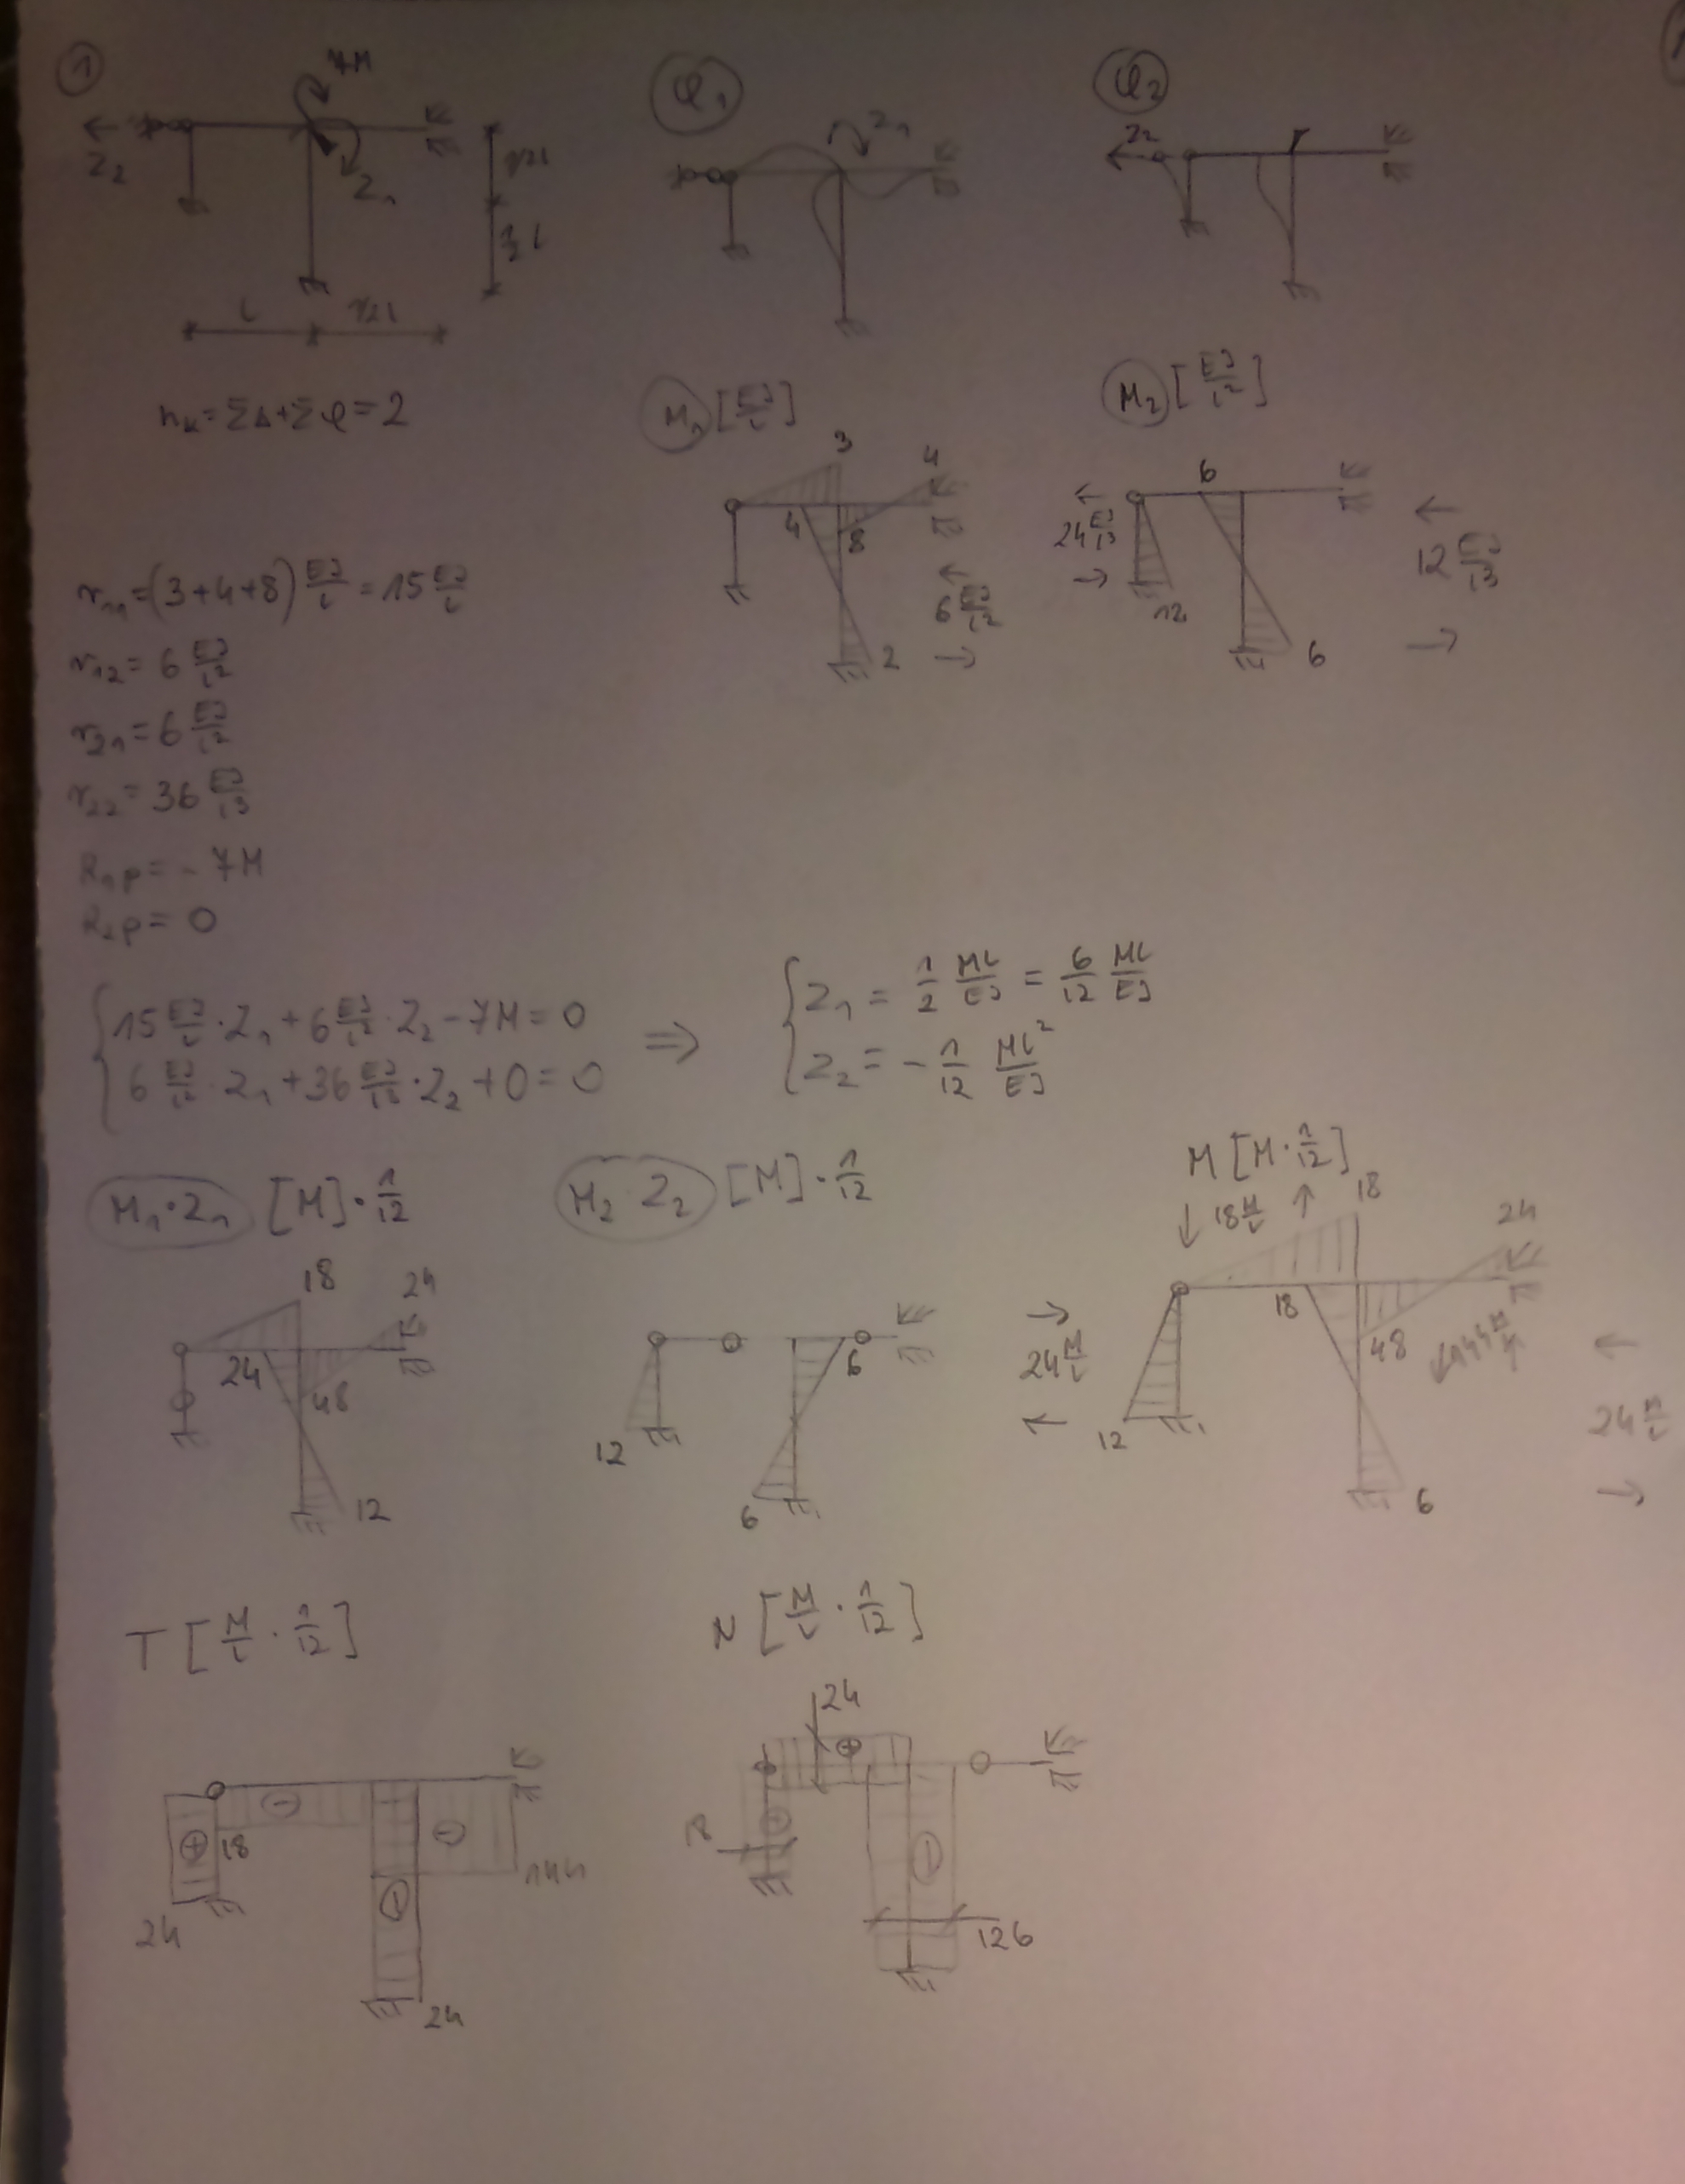 1
7M
Z₂
Z₁
1/2 l
1/2 l
l
1/2 l
φ₁
Z₁
φ₂
Z₂
nₖ = ΣΔ + Σφ = 2
M₁ [EJ/l]
3
4
4
8
6 EJ/l²
2
M₂ [EJ/l²]
6
24 EJ/l³
12 EJ/l³
12
6
r₁₁ = (3+4+8) EJ/l = 15 EJ/l
r₁₂ = 6 EJ/l²
r₂₁ = 6 EJ/l²
r₂₂ = 36 EJ/l³
R₁p = - 7M
R₂p = 0
{ 15 EJ/l · Z₁ + 6 EJ/l² · Z₂ - 7M = 0
6 EJ/l² · Z₁ + 36 EJ/l³ · Z₂ + 0 = 0
⇒
{ Z₁ = 1/2 Ml/EJ = 6/12 Ml/EJ
Z₂ = - 1/12 Ml²/EJ
M₁·Z₁ [M]·1/12
18
24
24
48
12
M₂ Z₂ [M]·1/12
6
12
6
M [M·1/12]
18 M/l
18
24
24 M/l
18
48
144 M/l
24 M/l
12
6
T [M/l · 1/12]
-
+
18
-
144
-
24
24
N [M/l · 1/12]
24
+
18
+
-
126